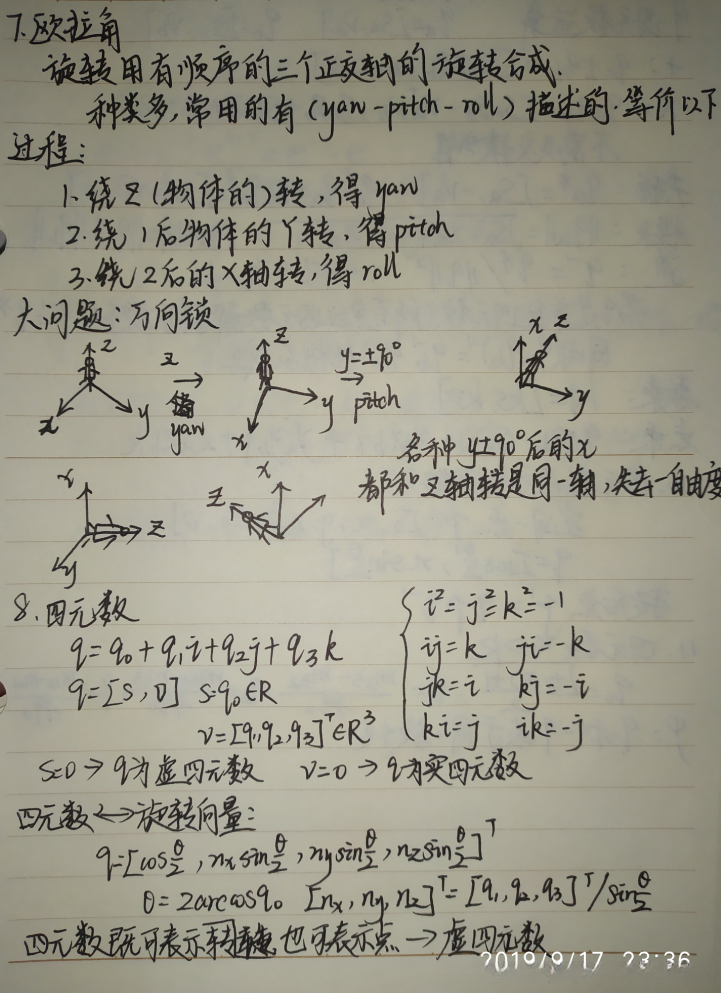 7.欧拉角
旋转用有顺序的三个正交轴的旋转合成.
种类多,常用的有(yaw-pitch-roll)描述的.等价以下
过程:
1.绕Z(物体的)转,得yaw
2.绕1后物体的Y转,得pitch
3.绕2后的X轴转,得roll
大问题:万向锁
z x y
z
yaw
z x y
y=±90°
pitch
x z y
各种y±90°后的x
都和Z轴转是同一轴,失去一自由度
x z y
z x
8.四元数
q=q₀+q₁i+q₂j+q₃k
q=[s,v] s=q₀∈R
v=[q₁,q₂,q₃]ᵀ∈R³
i²=j²=k²=-1
ij=k ji=-k
jk=i kj=-i
ki=j ik=-j
s=0→q为虚四元数 v=0→q为实四元数
四元数↔旋转向量:
q=[cosθ/2,nxsinθ/2,nysinθ/2,nzsinθ/2]ᵀ
θ=2arccosq₀ [nx,ny,nz]ᵀ=[q₁,q₂,q₃]ᵀ/sinθ/2
四元数既可表示转 也可表示点→虚四元数
2019/9/17 23:36